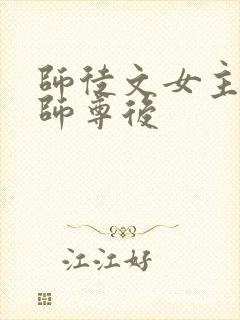 師徒文女主
師尊後
江江好